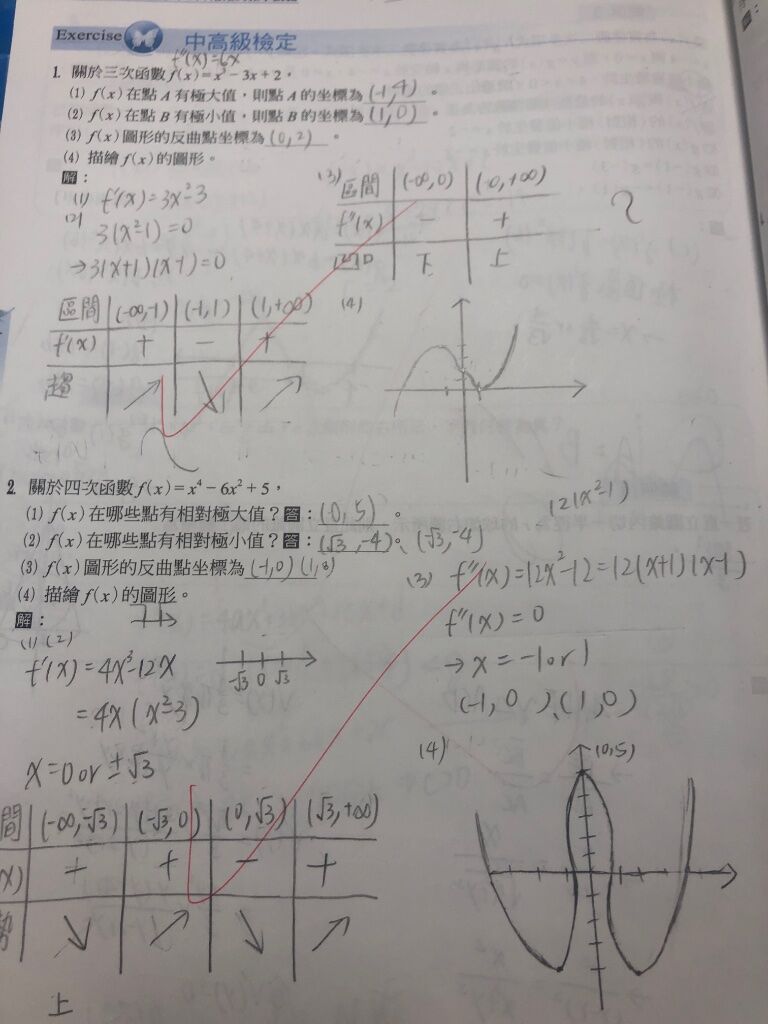 Exercise 中高級檢定
f''(x)=6x
1. 關於三次函數 f(x)=x³－3x＋2，
(1) f(x) 在點 A 有極大值，則點 A 的坐標為 (-1,4) 。
(2) f(x) 在點 B 有極小值，則點 B 的坐標為 (1,0) 。
(3) f(x) 圖形的反曲點坐標為 (0,2) 。
(4) 描繪 f(x) 的圖形。
解：
(1) f'(x)=3x²-3
(2) 3(x²-1)=0
→3(x+1)(x-1)=0
區間 (-∞,-1) (-1,1) (1,+∞)
f'(x) + - +
趨 ↗ ↘ ↗
(3) 區間 (-∞,0) (0,+∞)
f''(x) - +
凹口 下 上
(4)
2. 關於四次函數 f(x)=x⁴－6x²＋5，
(1) f(x) 在哪些點有相對極大值？答：(0,5) 。
(2) f(x) 在哪些點有相對極小值？答：(√3,-4)、(-√3,-4)
(3) f(x) 圖形的反曲點坐標為 (-1,0) (1,0)
(4) 描繪 f(x) 的圖形。
解：
(1) (2)
f'(x)=4x³-12x
=4x(x²-3)
x=0 or ±√3
-√3 0 √3
間 (-∞,-√3) (-√3,0) (0,√3) (√3,+∞)
x) + + - +
勢 ↘ ↗ ↘ ↗
上
12(x²-1)
(3) f''(x)=12x²-12=12(x+1)(x-1)
f''(x)=0
→x=-1 or 1
(-1,0)、(1,0)
(4)
(0,5)